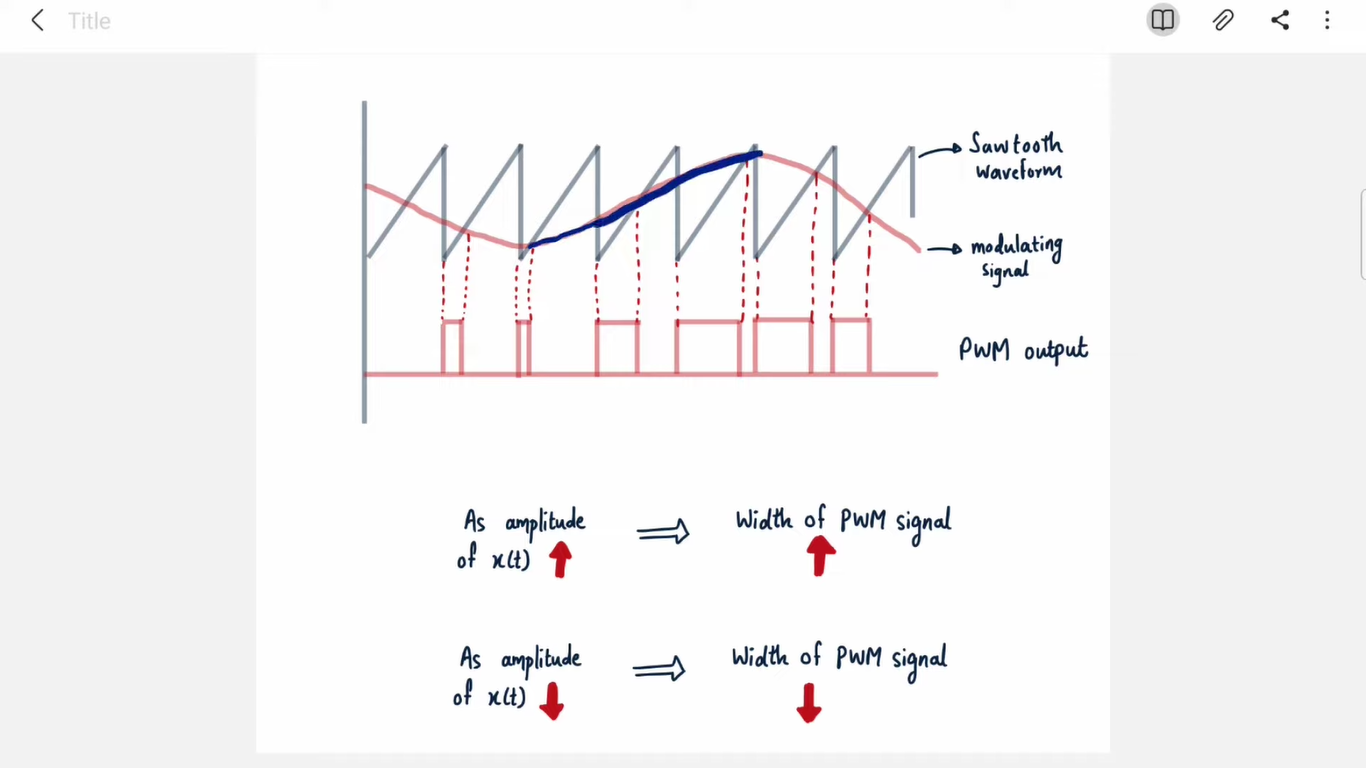 Title
Sawtooth
waveform
modulating
signal
PWM output
As amplitude
of x(t)
Width of PWM signal
As amplitude
of x(t)
Width of PWM signal